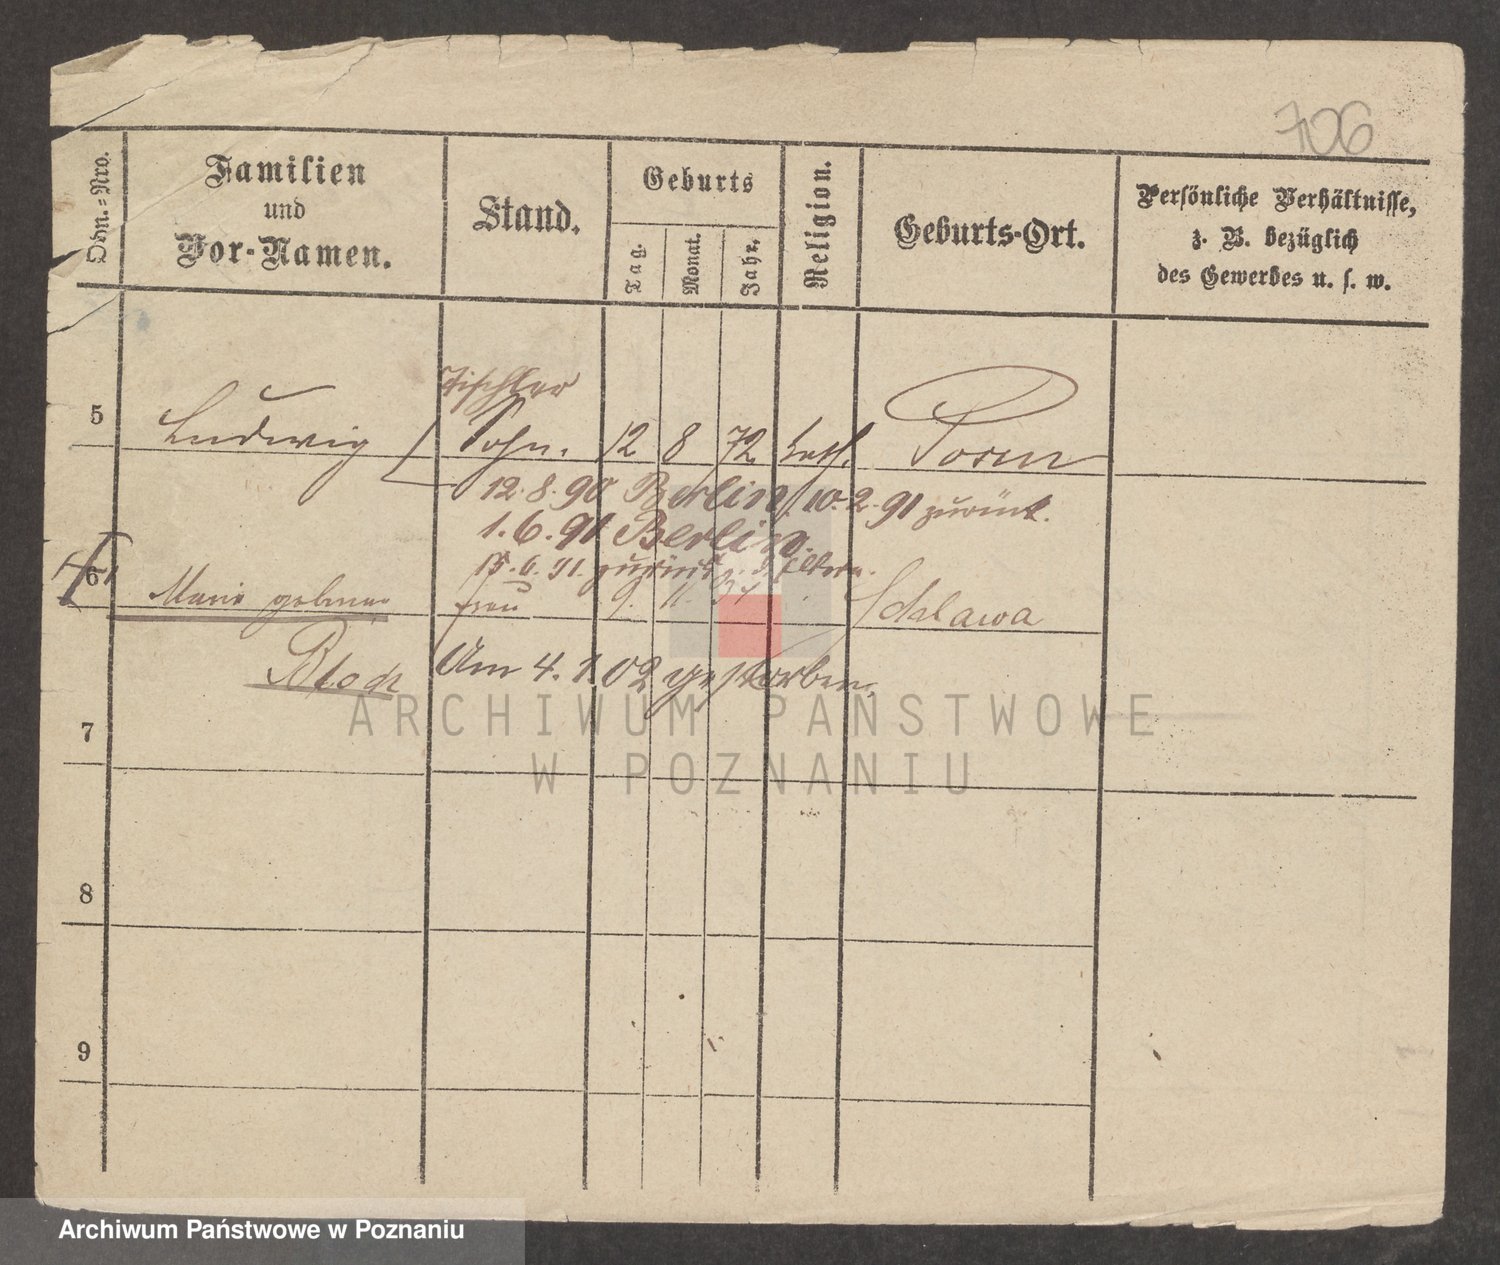 706
Ordn.=Nro.
Familien
und
Vor-Namen.
Stand.
Geburts
Tag.
Monat.
Jahr.
Religion.
Geburts-Ort.
Persönliche Verhältnisse,
z. B. bezüglich
des Gewerbes u. s. w.
Tischler
5 Ludwig Sohn. 12 8 72 kath. Posen
12.8.90 Berlin, 10.2.91 zurück.
1.6.91 Berlin.
15.6.91. zurück z. d. Eltern.
6 Marie geborne Frau 9. 11. Schlawa
Block Am 4.1.02 gestorben.
7
8
9
ARCHIWUM PAŃSTWOWE
W POZNANIU
Archiwum Państwowe w Poznaniu